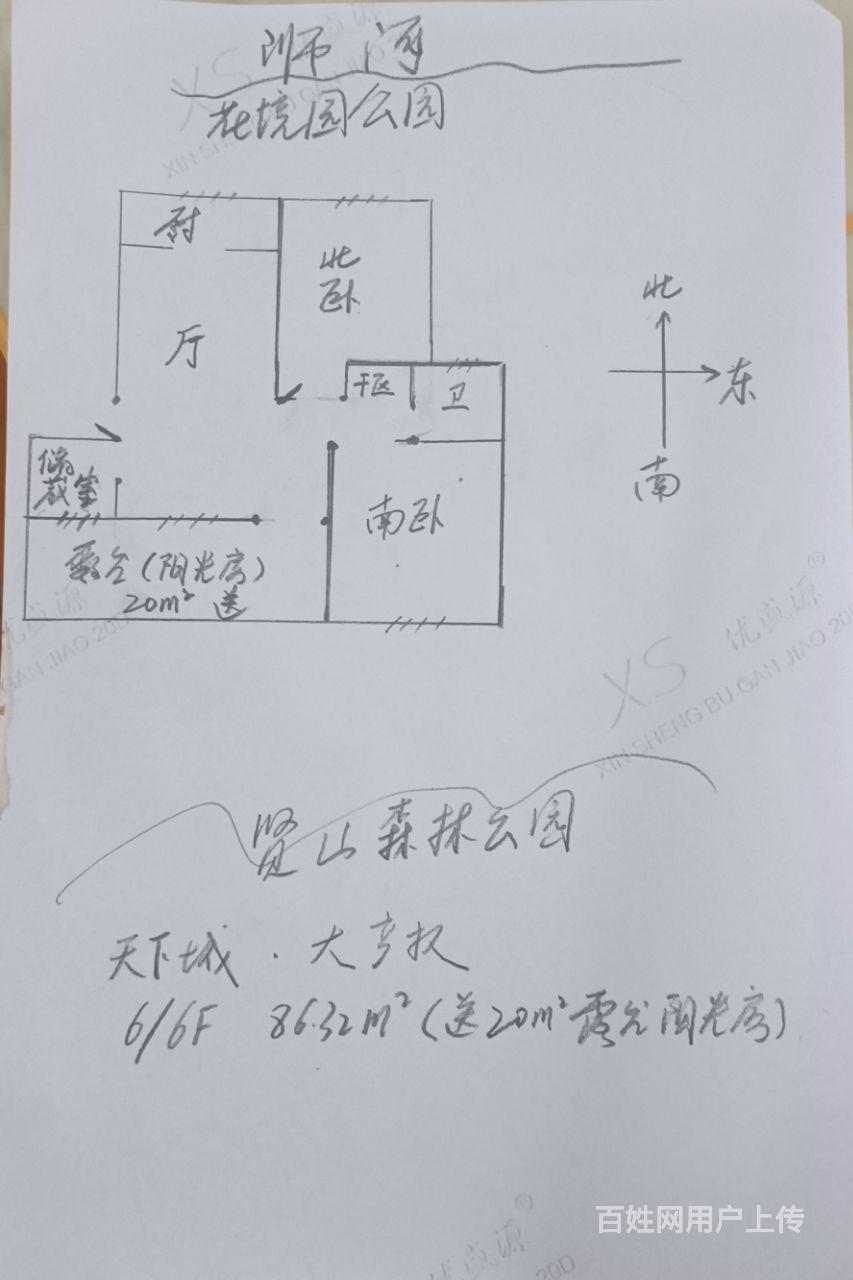 浉河
花境园公园
厨
北卧
厅
干区
卫
北
东
南
储藏室
南卧
露台(阳光房)
20m² 送
XS 优盛源®
XIN SHENG BU GAN JIAO 20D
贤山森林公园
天下城·大产权
6/6F 86.32m²(送20m²露台阳光房)
百姓网用户上传